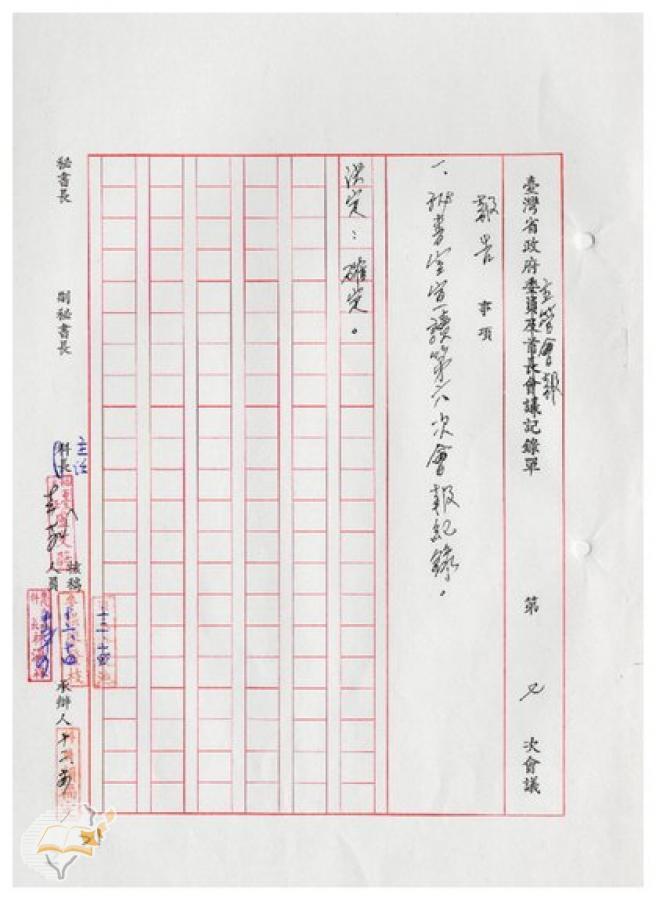 臺灣省政府委員及首長會議記錄單 第 七 次會議
主管會報
報告事項
一、秘書室宣讀第六次會報紀錄。
決定：確定。
秘書長 副秘書長 科長 核稿人員 承辦人
主任